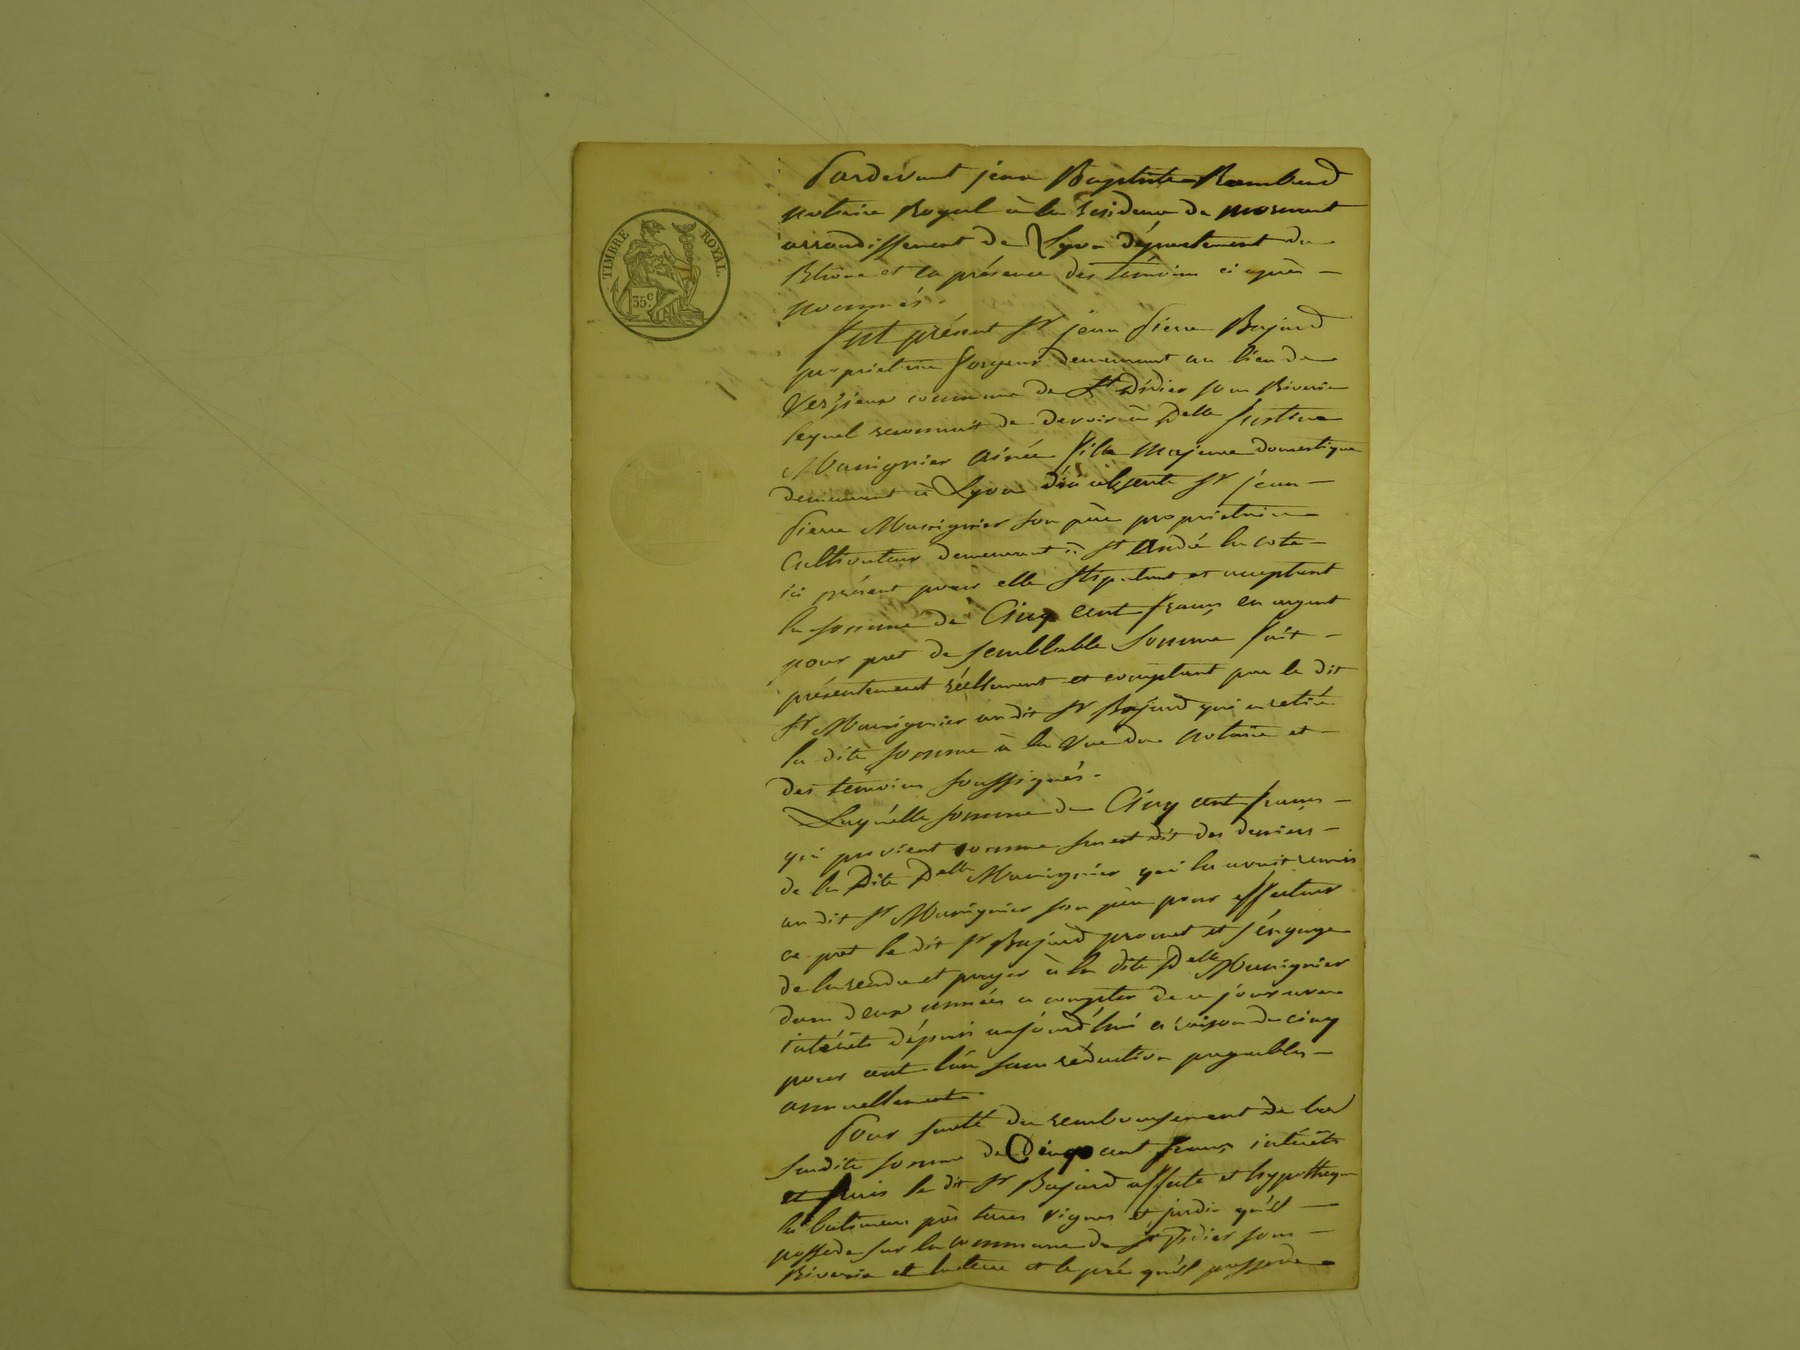 TIMBRE ROYAL.
35c
Pardevant jean Baptiste Rambaud
notaire Royal à la residence de mornant
arrondissement de Lyon département du
Rhône et en présence des témoins ci après
nommés.
Est présent Sr jean Pierre Bajard
propriétaire demeurant au lieu de
commune de St Didier sous Riverie
lequel reconnait de devoir à Delle Justine
Mussignier ainée fille majeure domestique
demeurant à Lyon d'ici absente Sr jean
Pierre Mussignier son père propriétaire
Cultivateur demeurant à St andré la cote
ici présent pour elle stipulant et acceptant
la somme de Cinq cent francs en argent
pour pret de semblable Somme fait
présentement réellement et comptant par le dit
Sr Mussignier au dit Sr Bajard qui a retiré
la dite somme à la Vue du notaire et
des témoins soussignés.
Laquelle somme de Cinq cent francs
qui provient comme est dit des deniers
de la Dite Delle Mussignier qui la avait remis
au dit Sr Mussignier son père pour effectuer
ce pret le dit Sr Bajard promet et s'éngage
de la rendre et payer à la dite Delle Mussignier
dans deux années a compter de ce jour avec
intérêts dépuis aujourd'hui a raison de cinq
pour cent l'an sans réduction payables
annuellement.
Pour sureté du remboursement de la
susdite somme de Cinq cent francs intérêts
et frais le dit Sr Bajard affecte et hypotheque
les batimens près terres vignes et jardin qu'il
possede sur la commune de St Didier sous
Riverie et la terre et le pré qu'il possede